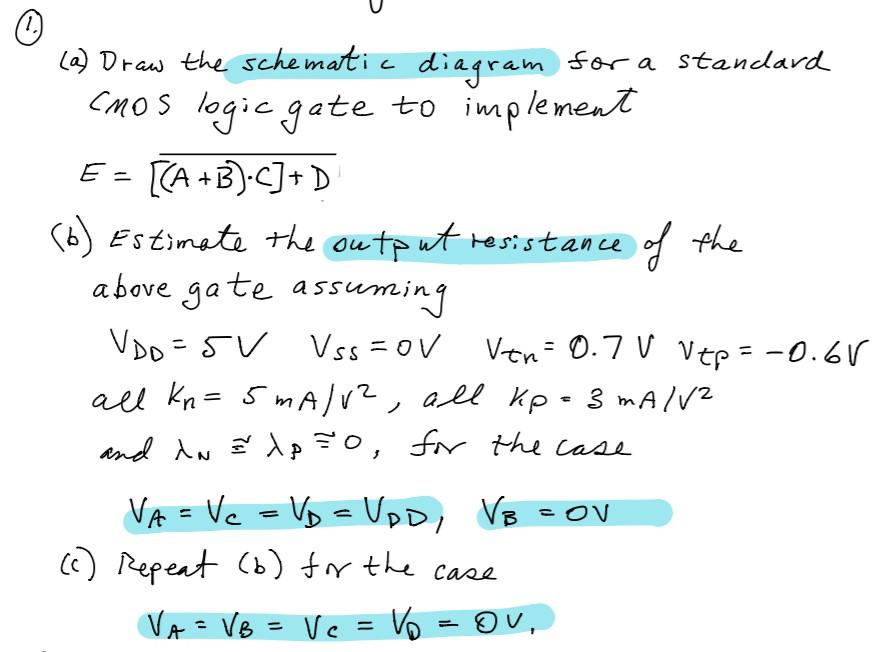 1.
(a) Draw the schematic diagram for a standard
CMOS logic gate to implement
E = \overline{[(A+B)·C]+D}
(b) Estimate the output resistance of the
above gate assuming
V_DD = 5V V_SS = 0V V_tn = 0.7 V V_tp = -0.6V
all K_n = 5 mA/V², all K_p = 3 mA/V²
and λ_N ≅ λ_P ≅ 0, for the case
V_A = V_C = V_D = V_DD, V_B = 0V
(c) Repeat (b) for the case
V_A = V_B = V_C = V_D = 0V.